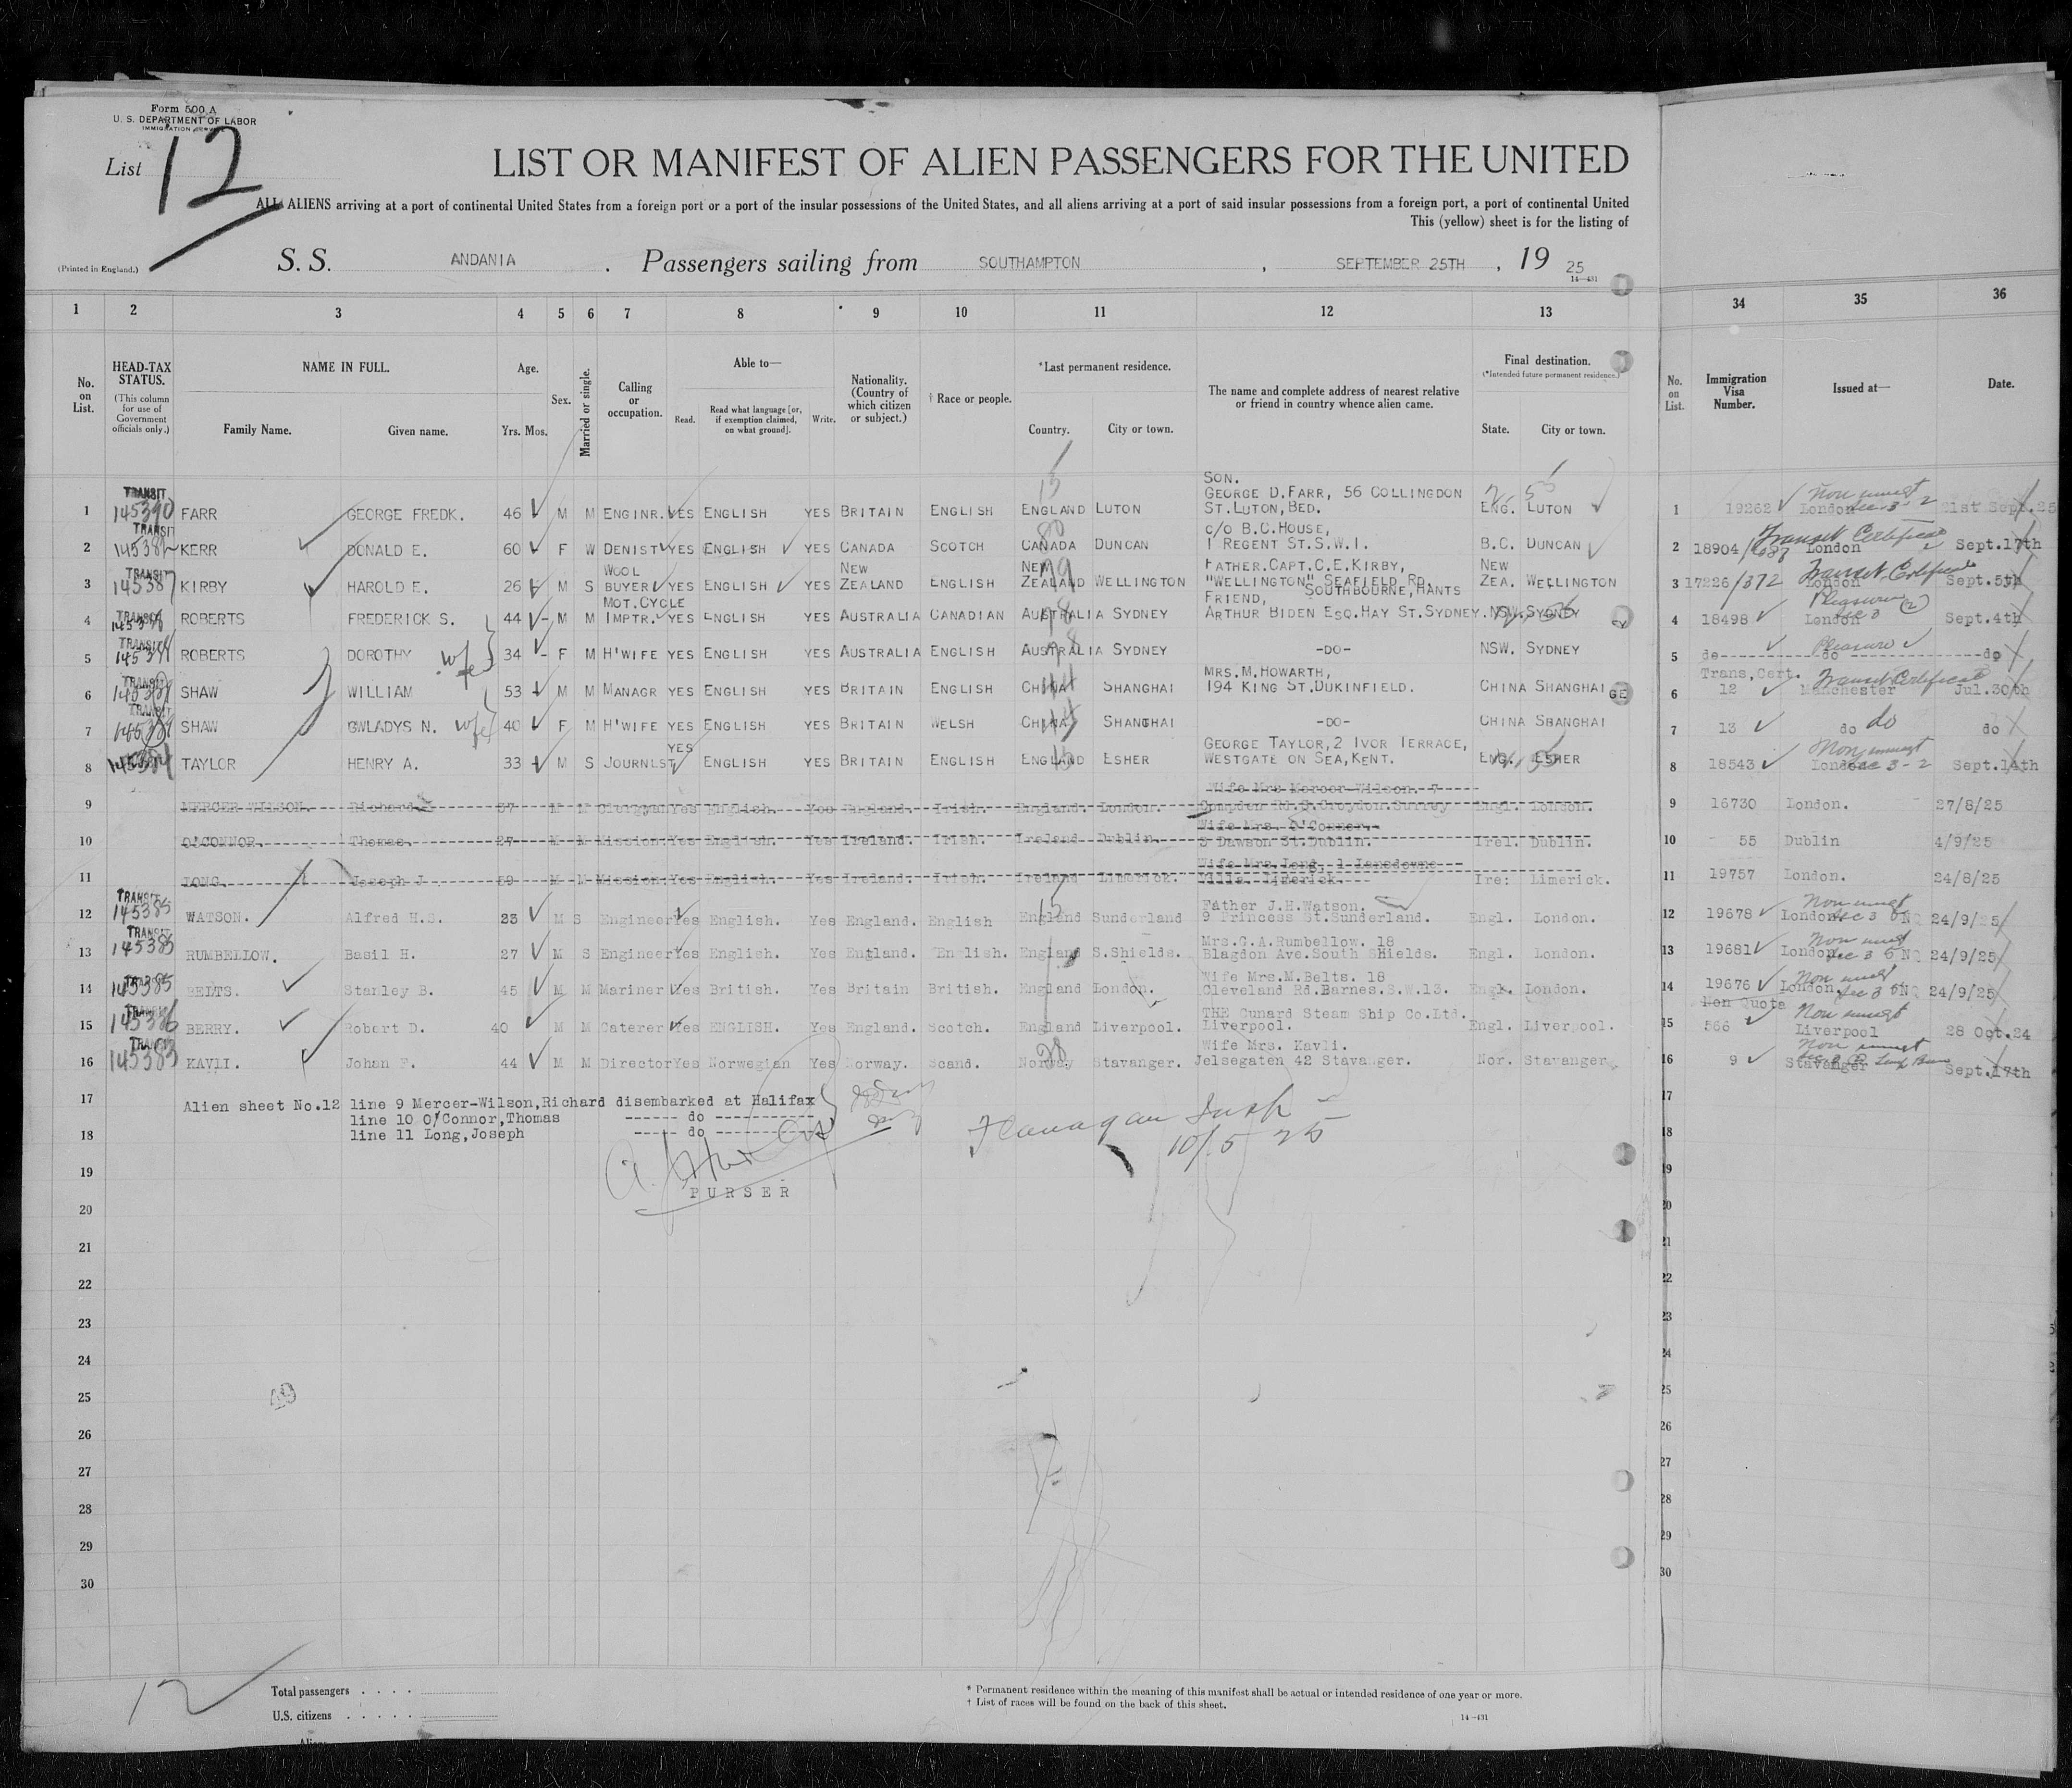 Form 500 A
U. S. DEPARTMENT OF LABOR
IMMIGRATION SERVICE
List 12
LIST OR MANIFEST OF ALIEN PASSENGERS FOR THE UNITED
ALL ALIENS arriving at a port of continental United States from a foreign port or a port of the insular possessions of the United States, and all aliens arriving at a port of said insular possessions from a foreign port, a port of continental United
This (yellow) sheet is for the listing of
(Printed in England.)
S. S. ANDANIA . Passengers sailing from SOUTHAMPTON , SEPTEMBER 25TH , 19 25
14—431
1 2 3 4 5 6 7 8 9 10 11 12 13 34 35 36
No. on List.
HEAD-TAX STATUS.
(This column for use of Government officials only.)
NAME IN FULL.
Family Name. Given name.
Age.
Yrs. Mos.
Sex.
Married or single.
Calling or occupation.
Able to—
Read. Read what language [or, if exemption claimed, on what ground]. Write.
Nationality. (Country of which citizen or subject.)
† Race or people.
*Last permanent residence.
Country. City or town.
The name and complete address of nearest relative or friend in country whence alien came.
Final destination.
(*Intended future permanent residence.)
State. City or town.
No. on List.
Immigration Visa Number.
Issued at—
Date.
TRANSIT SON.
GEORGE D.FARR, 56 COLLINGDON
1 145390 FARR GEORGE FREDK. 46 M M ENGINR. YES ENGLISH YES BRITAIN ENGLISH ENGLAND LUTON ST.LUTON, BED. ENG. LUTON 1 19262 London 21st Sept.25
TRANSIT C/O B.C.HOUSE,
2 KERR DONALD E. 60 F W DENIST YES ENGLISH YES CANADA SCOTCH CANADA DUNCAN 1 REGENT ST.S.W.1. B.C. DUNCAN 2 18904/ London Transit Certificate Sept.17th
TRANSIT WOOL NEW NEW FATHER.CAPT.C.E.KIRBY, NEW
3 145387 KIRBY HAROLD E. 26 M S BUYER YES ENGLISH YES ZEALAND ENGLISH ZEALAND WELLINGTON "WELLINGTON" SEAFIELD RD. SOUTHBOURNE,HANTS ZEA. WELLINGTON 3 17226/372 London Transit Certificate Sept.5th
MOT.CYCLE FRIEND,
4 TRANSIT ROBERTS FREDERICK S. 44 M M IMPTR. YES ENGLISH YES AUSTRALIA CANADIAN AUSTRALIA SYDNEY ARTHUR BIDEN ESQ.HAY ST.SYDNEY.NSW.SYDNEY 4 18498 London Pleasure Sept.4th
5 TRANSIT ROBERTS DOROTHY wife 34 F M H'WIFE YES ENGLISH YES AUSTRALIA ENGLISH AUSTRALIA SYDNEY -DO- NSW. SYDNEY 5 do do Pleasure do
MRS.M.HOWARTH, Trans.Cert.
6 TRANSIT SHAW WILLIAM 53 M M MANAGR YES ENGLISH YES BRITAIN ENGLISH CHINA SHANGHAI 194 KING ST.DUKINFIELD. CHINA SHANGHAI 6 12 Manchester Transit Certificate Jul.30th
7 TRANSIT SHAW GWLADYS N. wife 40 F M H'WIFE YES ENGLISH YES BRITAIN WELSH CHINA SHANGHAI -DO- CHINA SHANGHAI 7 13 do do do
YES GEORGE TAYLOR,2 IVOR TERRACE,
8 TAYLOR HENRY A. 33 M S JOURNLST ENGLISH YES BRITAIN ENGLISH ENGLAND ESHER WESTGATE ON SEA,KENT. ENG. ESHER 8 18543 London Sept.14th
Wife Mrs Mercer Wilson. 7
9 MERCER WILSON. Richard 57 M M Clergyman Yes English. Yes England. Irish. England. London. Campden Rd.S.Croydon.Surrey Engl. London. 9 16730 London. 27/8/25
Wife Mrs. O'Connor.
10 O'CONNOR. Thomas. 27 M M Mission. Yes English. Yes Ireland. Irish. Ireland Dublin. 3 Dawson St.Dublin. Irel. Dublin. 10 55 Dublin 4/9/25
Wife Mrs.Long, 1 Lansdowne
11 LONG. Joseph J 59 M M Mission. Yes English. Yes Ireland. Irish. Ireland Limerick. Villa. Limerick. Ire: Limerick. 11 19757 London. 24/8/25
TRANSIT Father J.H.Watson.
12 145385 WATSON. Alfred H.S. 23 M S Engineer Yes English. Yes England. English England Sunderland 9 Princess St.Sunderland. Engl. London. 12 19678 London 24/9/25
TRANSIT Mrs.G.A.Rumbellow. 18
13 145385 RUMBELLOW. Basil H. 27 M S Engineer Yes English. Yes England. English. England S.Shields. Blagdon Ave.South Shields. Engl. London. 13 19681 London 24/9/25
Wife Mrs.M.Belts. 18
14 145385 BELTS. Stanley B. 45 M M Mariner Yes British. Yes Britain British. England London. Cleveland Rd.Barnes.S.W.13. Engl. London. 14 19676 London. 24/9/25
TRANSIT THE Cunard Steam Ship Co.Ltd. Non Quota
15 145386 BERRY. Robert D. 40 M M Caterer Yes ENGLISH. Yes England. Scotch. England Liverpool. Liverpool. Engl. Liverpool. 15 566 Liverpool 28 Oct.24
TRANSIT Wife Mrs. Kavli.
16 145383 KAVLI. Johan F. 44 M M Director Yes Norwegian Yes Norway. Scand. Norway Stavanger. Jelsegaten 42 Stavanger. Nor. Stavanger 16 9 Stavanger Sept.17th
17 Alien sheet No.12 line 9 Mercer-Wilson,Richard disembarked at Halifax 17
line 10 O/Connor,Thomas ------ do ------
18 line 11 Long,Joseph ------ do ------ 18
Flanagan Insp
10/5 25
19 19
PURSER
20 20
21 21
22 22
23 23
24 24
25 25
26 26
27 27
28 28
29 29
30 30
12
Total passengers . . . .
U.S. citizens . . . . .
* Permanent residence within the meaning of this manifest shall be actual or intended residence of one year or more.
† List of races will be found on the back of this sheet.
14—431